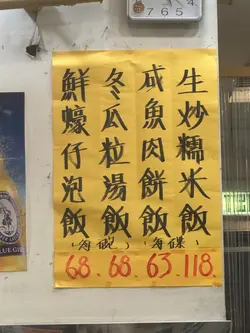 生炒糯米飯
咸魚肉餅飯
冬瓜粒湯飯
鮮蠔仔泡飯
(每碗) (每碟)
68. 68. 63. 118.
7 6 5 4